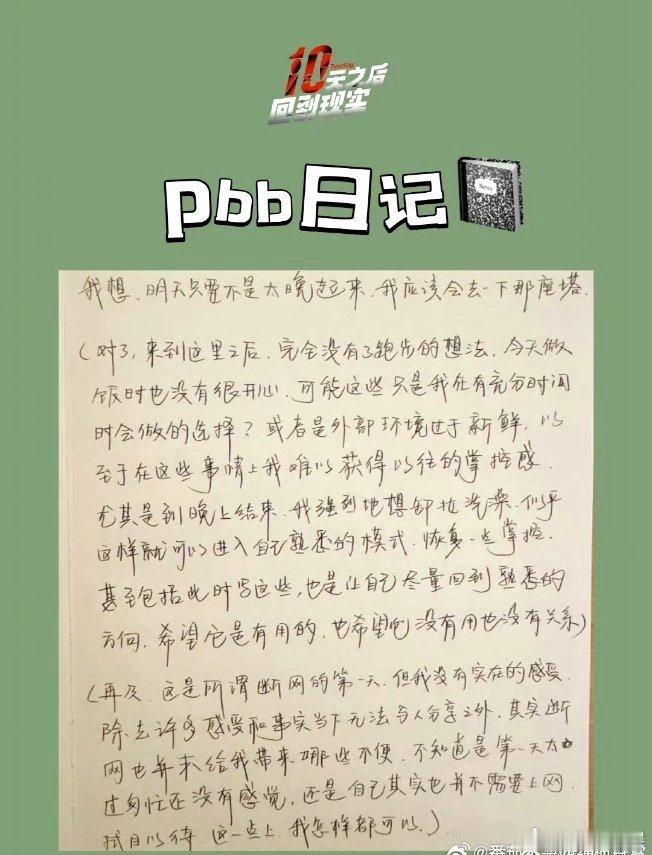 10天之后
Tenday
回到现实
pbb日记
Notes
我想,明天只要不是太晚起来,我应该会去一下那座塔.
(对了,来到这里之后,完全没有了跑步的想法,今天做
饭时也没有很开心,可能这些只是我在有充分时间
时会做的选择?或者是外部环境过于新鲜,以
至于在这些事情上我难以获得以往的掌控感.
尤其是到晚上结束,我强烈地想卸妆洗澡,似乎
这样就可以进入自己熟悉的模式,恢复一些掌控.
甚至包括此时写这些,也是让自己尽量回到熟悉的
方向,希望它是有用的,也希望它没有用也没有关系)
(再及,这是所谓断网的第一天,但我没有实在的感受,
除去许多感受和事实当下无法与人分享之外,其实断
网也并未给我带来哪些不便,不知道是第一天太
过匆忙还没有感觉,还是自己其实也并不需要上网,
拭目以待,这一点上,我怎样都可以.)